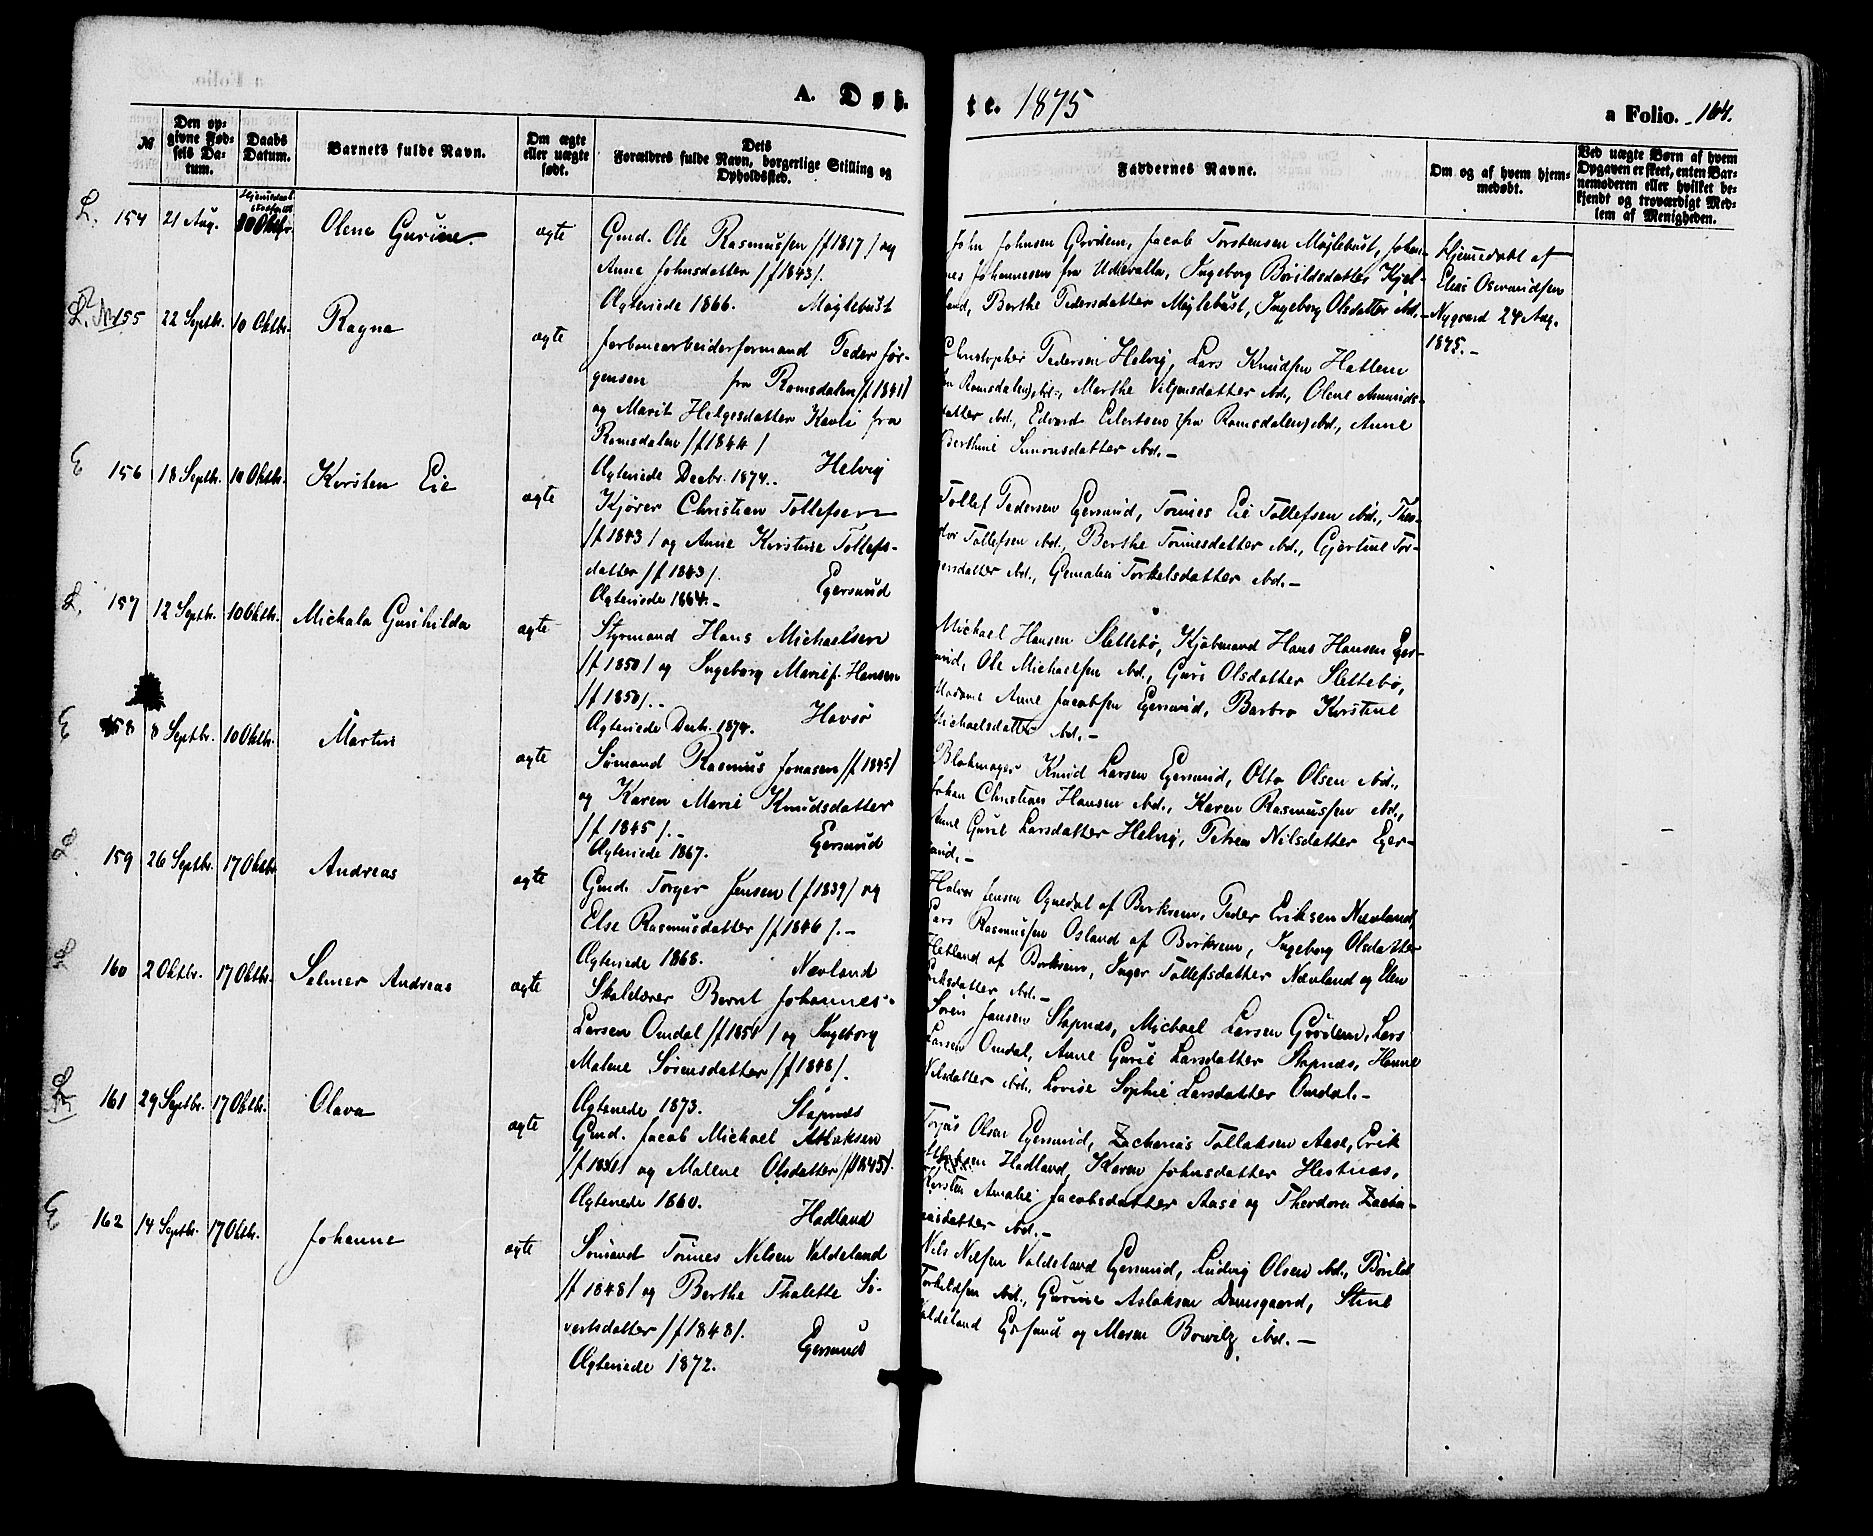 A. Døb-
te. 1875
a Folio. 104.
№
Den op-
givne Fød-
sels Da-
tum.
Daabs
Datum.
Barnets fulde Navn.
Om ægte
eller uægte
født.
Dets
Forældres fulde Navn, borgerlige Stilling og
Opholdssted.
Faddernes Navne.
Om og af hvem hjem-
medøbt.
Ved uægte Børn af hvem
Opgaven er skeet, enten Bar-
nemoderen eller hvilket be-
kjendt og troværdigt Med-
lem af Menigheden.
L. 154 21 Aug. Olene Gurine. ægte
Gmd. Ole Rasmussen /f 1817/ og
Anne Johnsdatter /f 1843/.
Ægteviede 1866. Møglebust
John Johnsen Grødem, Jacob Torstensen Møglebust, Johan-
nes Johannesen fra Udevalla, Ingeborg Børildsdatter Kjel-
land, Berthe Pedersdatter Møglebust, Ingeborg Olsdatter ibd.-
Hjemmedøbt af
Elias Osmundsen
Nygaard 24 Aug.
1875.-
155 22 Septbr. 10 Oktbr. Ragna ægte
Jærbanearbeiderformand Peder Jør-
gensen fra Romsdalen /f 1841/
og Marit Helgesdatter Kavli fra
Romsdalen /f 1844/
Ægteviede Decbr. 1874. Helvig
Christopher Pedersen Helvig, Lars Knudsen Hatlem
fra Romsdalen, ibd., Marthe Viljamsdatter ibd., Olene Amunds-
datter ibd., Edvard Eilertsen (fra Romsdalen) ibd., Anne
Berthine Simonsdatter ibd.-
E 156 18 Septbr. 10 Oktbr. Kirsten Eie ægte
Kjører Christian Tollefsen
/f 1843/ og Anne Kirstine Tollefs-
datter /f 1843/. Egersund
Ægteviede 1864.-
Tollef Pedersen Egersund, Tønnes Eie Tollefsen ibd., Theo-
dor Tollefsen ibd., Berthe Tønnesdatter ibd., Gjertine Tor-
gersdatter ibd., Gemalie Torkelsdatter ibd.-
L. 157 12 Septbr. 10 Oktbr. Michala Gunhilda ægte
Styrmand Hans Michaelsen
/f 1850/ og Ingeborg Marie f. Hansen
/f 1850/.- Havsø
Ægteviede Decbr. 1874.
Michael Hansen Slettebø, Kjøbmand Hans Hansen Eger-
sund, Ole Michaelsen ibd., Guri Olsdatter Slettebø,
Madame Anne Jacobsen Egersund, Barbro Kirstine
Michaelsdatter ibd.-
E 158 8 Septbr. 10 Oktbr. Martin ægte
Sømand Rasmus Jonasen /f 1845/
og Karen Marie Knudsdatter
/f 1845/.- Egersund
Ægteviede 1867.
Blokmager Knud Larsen Egersund, Otto Olsen ibd.,
Johan Christian Hansen ibd., Karen Rasmussen ibd.,
Anne Gurie Larsdatter Helvig, Petrea Nilsdatter Eger-
sund.-
159 26 Septbr. 17 Oktbr. Andreas ægte
Gmd. Torger Jensen (f 1839/ og
Else Rasmusdatter /f 1846/.-
Ægteviede 1868. Nævland
Halvor Jensen Ognedal af Birkrem, Peder Eriksen Nævland,
Lars Rasmussen Osland af Birkrem, Ingeborg Olsdatter
Hetland af Birkrem, Inger Tollefsdatter Nævland og Elen
Eriksdatter ibd.-
160 2 Oktbr. 17 Oktbr. Selmer Andreas ægte
Skolelærer Bernt Johannes
Larsen Omdal /f 1851/ og Ingeborg
Malene Sørensdatter /f 1848/.
Ægteviede 1873. Stapnæs
Søren Jansen Stapnæs, Michael Larsen Grødem, Lars
Larsen Omdal, Anne Gurie Larsdatter Stapnæs, Hanne
Nilsdatter ibd. Lovise Sophie Larsdatter Omdal.-
161 29 Septbr. 17 Oktbr. Olava ægte
Gmd. Jacob Michael Atlaksen
og Malene Olsdatter /f 1845/.
Ægteviede 1860. Hadland
Torjus Olsen Egersund, Zacharias Tollaksen Aase, Erik
Hadland, Karen Johnsdatter Hestnæs,
Kirsten Amalie Jacobsdatter Aase og Theodora Zacha-
riasdatter ibd.-
E 162 14 Septbr. 17 Oktbr. Johanne ægte
Sømand Tønnes Nilsen Valdeland
/f 1848/ og Berthe Thalette Si-
vertsdatter /f 1848/. Egersund
Ægteviede 1872.
Nils Nilsen Valdeland Egersund, Ludvig Olsen ibd., Børild
Torkildsen ibd., Gurine Aslaksen Damsgaard, Stine
Valdeland Egersund og Maren ibd.-